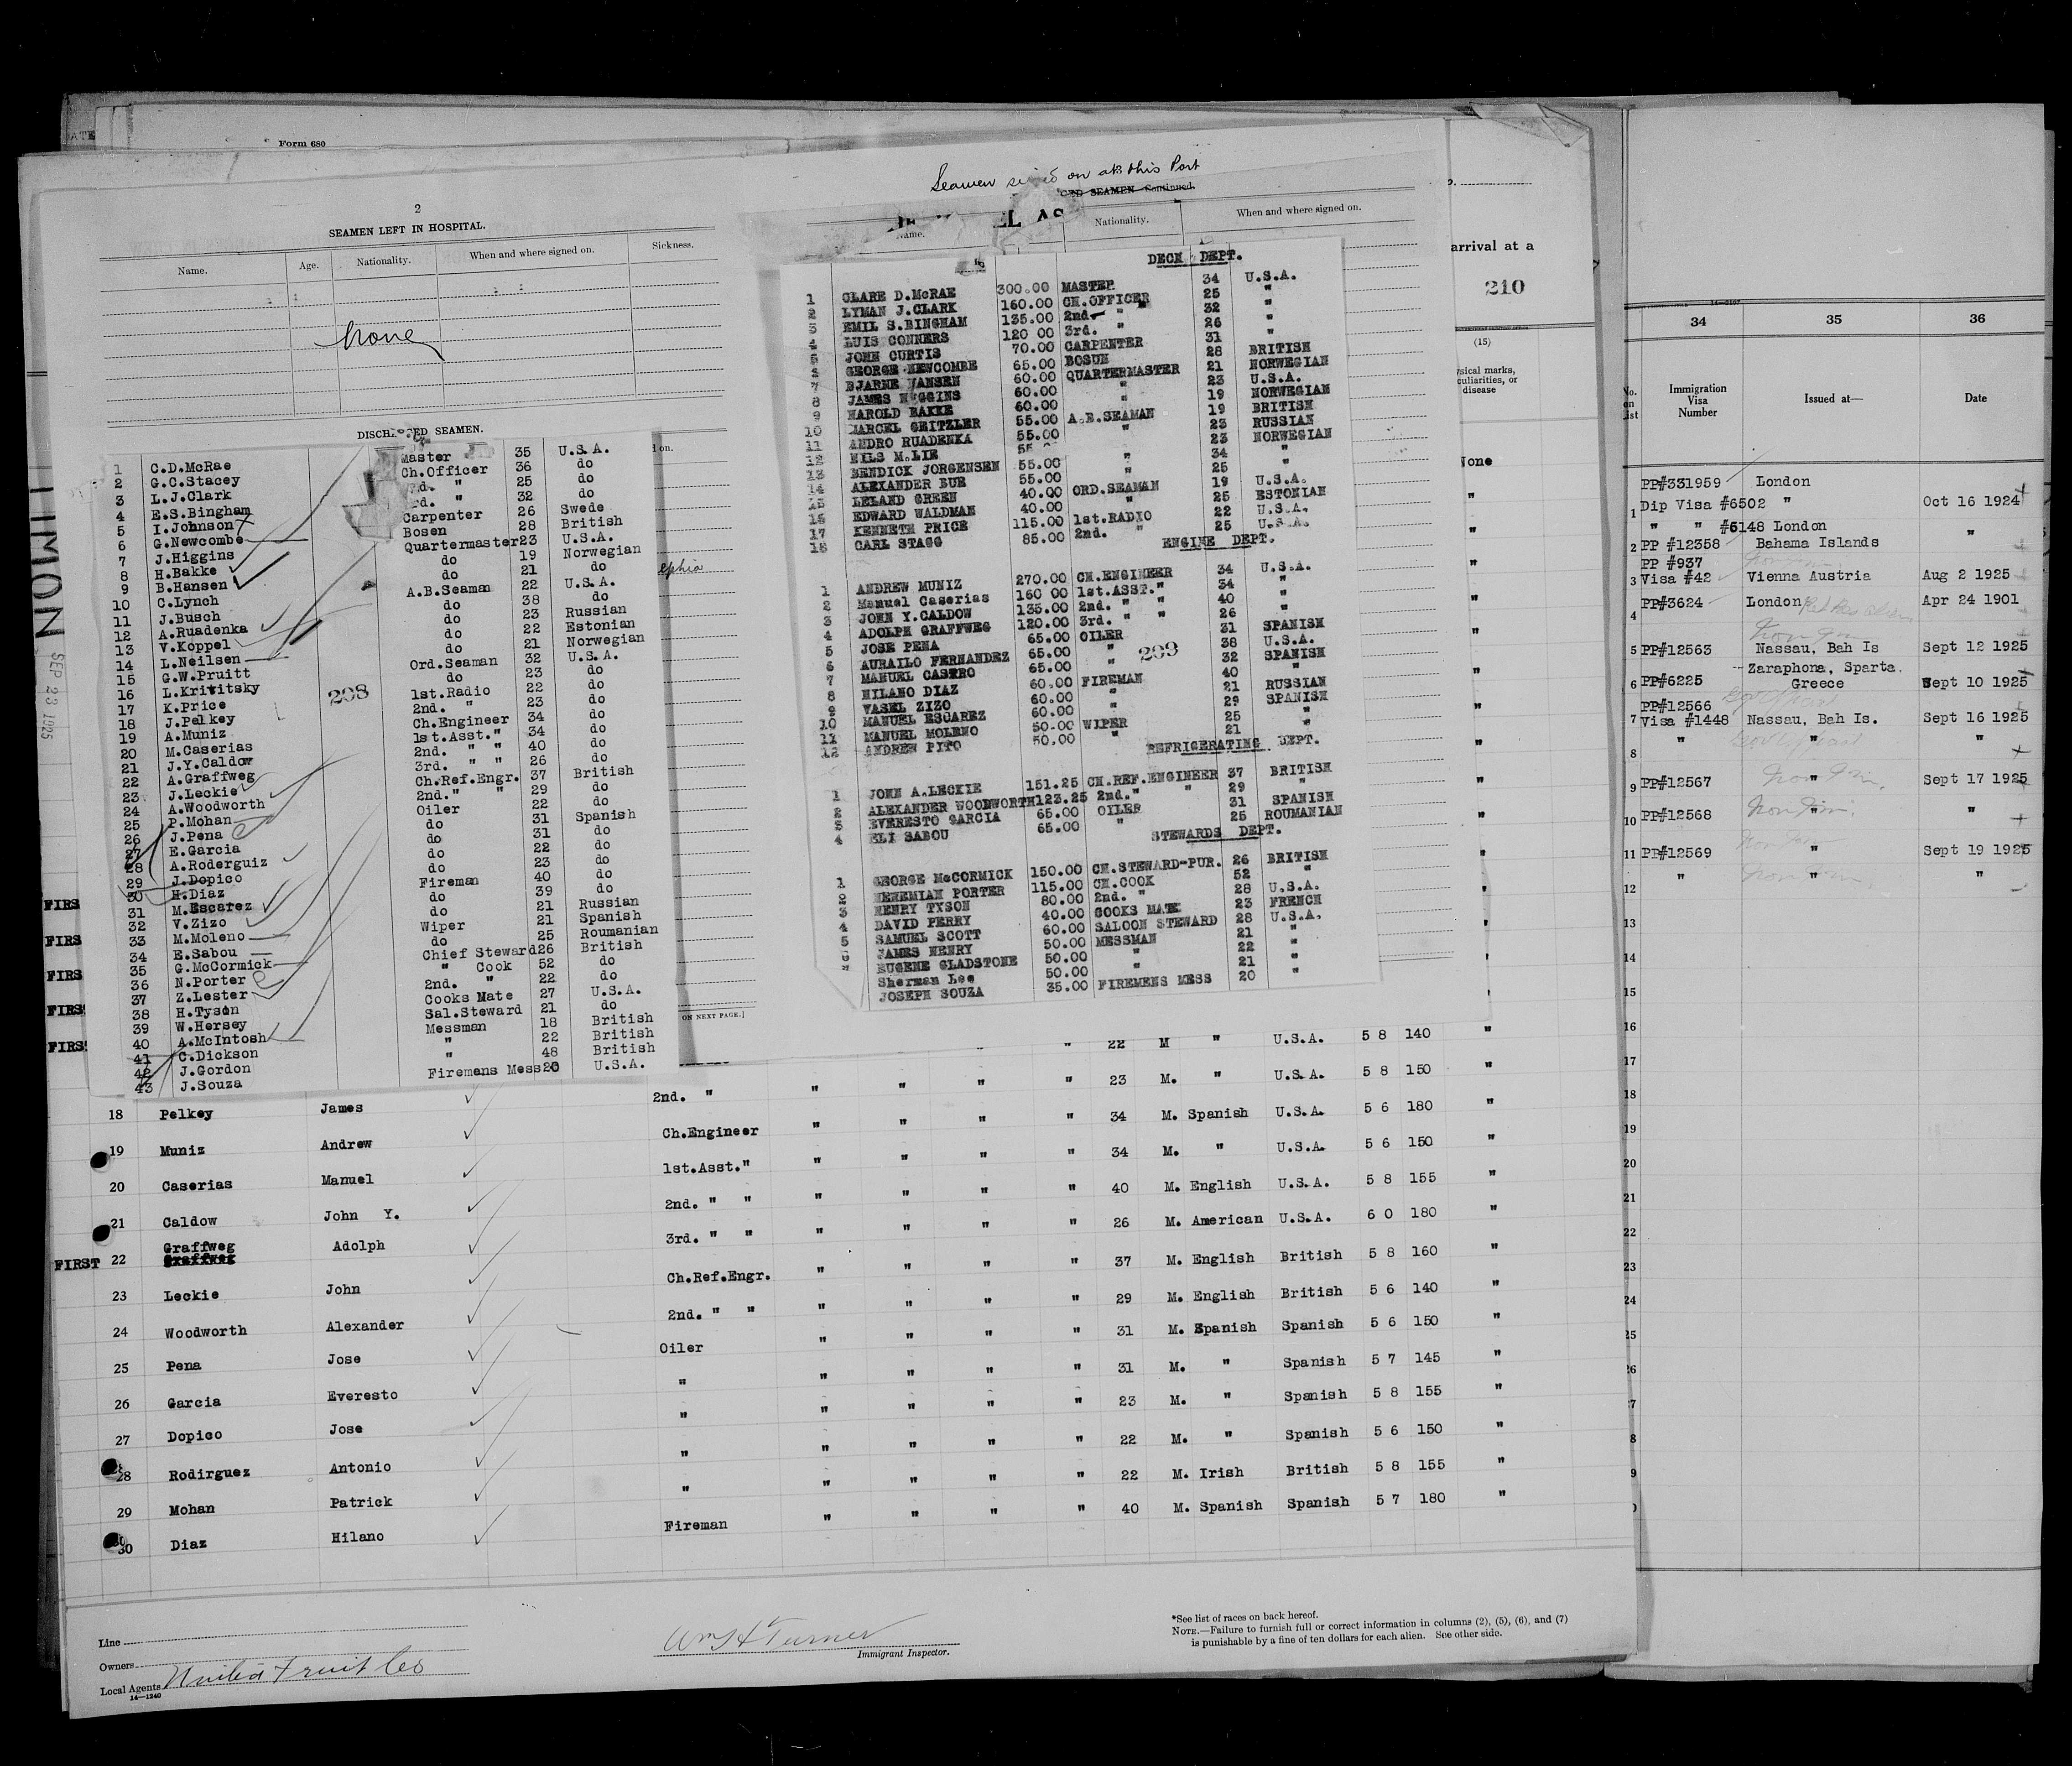 Form 680
2
SEAMEN LEFT IN HOSPITAL.
Name. Age. Nationality. When and where signed on. Sickness.
None
DISCHARGED SEAMEN.
1 C.D.McRae Master 35 U.S.A.
2 G.C.Stacey Ch.Officer 36 do
3 L.J.Clark 2nd. " 25 do
4 E.S.Bingham 3rd. " 32 do
5 I.Johnson Carpenter 26 Swede
6 G.Newcombe Bosen 28 British
7 J.Higgins Quartermaster 23 U.S.A.
8 H.Bakke do 19 Norwegian
9 B.Hansen do 21 do
10 C.Lynch A.B.Seaman 22 U.S.A.
11 J.Busch do 38 do
12 A.Ruadenka do 23 Russian
13 V.Koppel do 22 Estonian
14 L.Neilsen do 21 Norwegian
15 G.W.Pruitt Ord.Seaman 32 U.S.A.
16 L.Krititsky do 23 do
17 K.Price 1st.Radio 22 do
18 J.Pelkey 2nd. " 23 do
19 A.Muniz Ch.Engineer 34 do
20 M.Caserias 1st.Asst." 34 do
21 J.Y.Caldow 2nd. " " 40 do
22 A.Graffweg 3rd. " " 26 do
23 J.Leckie Ch.Ref.Engr. 37 British
24 A.Woodworth 2nd." " 29 do
25 P.Mohan Oiler 22 do
26 J.Pena do 31 Spanish
27 E.Garcia do 31 do
28 A.Roderguiz do 22 do
29 J.Dopico do 23 do
30 H.Diaz Fireman 40 do
31 M.Escarez do 39 do
32 V.Zizo do 21 Russian
33 M.Moleno Wiper 21 Spanish
34 E.Sabou do 25 Roumanian
35 G.McCormick Chief Steward 26 British
36 N.Porter " Cook 52 do
37 Z.Lester 2nd. " 22 do
38 H.Tyson Cooks Mate 27 U.S.A.
39 W.Hersey Sal.Steward 21 do
40 A.McIntosh Messman 18 British
41 C.Dickson " 22 British
42 J.Gordon " 48 British
43 J.Souza Firemans Mess 20 U.S.A.
208
ON NEXT PAGE.]
LIMON SEP 23 1925
Seamen signed on at this Port
SEAMEN—Continued.
Name. Nationality. When and where signed on.
DECK DEPT.
1 CLARE D.McRAE 300.00 MASTER 34 U.S.A.
2 LYMAN J.CLARK 160.00 CH.OFFICER 25 "
3 EMIL S.BINGHAM 135.00 2nd. " 32 "
4 LUIS CONNERS 120 00 3rd. " 26 "
5 JOHN CURTIS 70.00 CARPENTER 31 "
6 GEORGE NEWCOMBE 65.00 BOSUN 28 BRITISH
7 BJARNE HANSEN 60.00 QUARTERMASTER 21 NORWEGIAN
8 JAMES HIGGINS 60.00 " 23 U.S.A.
9 HAROLD BAKKE 60.00 " 19 NORWEGIAN
10 MARCEL GEITZLER 55.00 A.B.SEAMAN 19 BRITISH
11 ANDRO RUADENKA 55.00 " 23 RUSSIAN
12 NILS M.LIE 55 23 NORWEGIAN
13 BENDICK JORGENSEN 55.00 " 34 "
14 ALEXANDER BUE 55.00 " 25 "
15 LELAND GREEN 40.00 ORD.SEAMAN 19 U.S.A.
16 EDWARD WALDMAN 40.00 " 25 ESTONIAN
17 KENNETH PRICE 115.00 1st.RADIO 22 U.S.A.
18 CARL STAGG 85.00 2nd. " 25 U.S.A.
ENGINE DEPT.
1 ANDREW MUNIZ 270.00 CH.ENGINEER 34 U.S.A.
2 Manuel Caserias 160 00 1st.ASST." 34 "
3 JOHN Y.CALDOW 135.00 2nd. " " 40 "
4 ADOLPH GRAFFWEG 120.00 3rd. " " 26 "
5 JOSE PENA 65.00 OILER 31 SPANISH
6 AURAILO FERNANDEZ 65.00 " 38 U.S.A.
7 MANUEL CASTRO 65.00 " 32 SPANISH
8 HILANO DIAZ 60.00 FIREMAN 40 "
9 VASEL ZIZO 60.00 " 21 RUSSIAN
10 MANUEL ESCAREZ 60.00 " 29 SPANISH
11 MANUEL MOLENO 50.00 WIPER 25 "
12 ANDREW PITO 50.00 " 21 "
209
REFRIGERATING DEPT.
1 JOHN A.LECKIE 151.25 CH.REF.ENGINEER 37 BRITISH
2 ALEXANDER WOODWORTH 123.25 2nd." " 29 "
3 EVERESTO GARCIA 65.00 OILER 31 SPANISH
4 ELI SABOU 65.00 " 25 ROUMANIAN
STEWARDS DEPT.
1 GEORGE McCORMICK 150.00 CH.STEWARD-PUR. 26 BRITISH
2 NEHEMIAH PORTER 115.00 CH.COOK 52 "
3 HENRY TYSON 80.00 2nd. " 28 U.S.A.
4 DAVID PERRY 40.00 COOKS MATE 23 FRENCH
5 SAMUEL SCOTT 60.00 SALOON STEWARD 28 U.S.A.
6 JAMES HENRY 50.00 MESSMAN 21 "
EUGENE GLADSTONE 50.00 " 22 "
Sherman Lee 50.00 " 21 "
JOSEPH SOUZA 35.00 FIREMENS MESS 20 "
arrival at a
210
(15)
None
22 M " U.S.A. 5 8 140 "
18 Pelkey James 2nd. " " " " " 23 M. " U.S.A. 5 8 150 "
19 Muniz Andrew Ch.Engineer " " " " 34 M. Spanish U.S.A. 5 6 180 "
20 Caserias Manuel 1st.Asst." " " " " 34 M. " U.S.A. 5 6 150 "
21 Caldow John Y. 2nd. " " " " " " 40 M. English U.S.A. 5 8 155 "
FIRST 22 Graffweg Adolph 3rd. " " " " " " 26 M. American U.S.A. 6 0 180 "
23 Leckie John Ch.Ref.Engr. " " " " 37 M. English British 5 8 160 "
24 Woodworth Alexander 2nd. " " " " " " 29 M. English British 5 6 140 "
25 Pena Jose Oiler " " " " 31 M. Spanish Spanish 5 6 150 "
26 Garcia Everesto " " " " " 31 M. " Spanish 5 7 145 "
27 Dopico Jose " " " " " 23 M. " Spanish 5 8 155 "
28 Rodirguez Antonio " " " " " 22 M. " Spanish 5 6 150 "
29 Mohan Patrick " " " " " 22 M. Irish British 5 8 155 "
30 Diaz Hilano Fireman " " " " 40 M. Spanish Spanish 5 7 180 "
Line
Owners
Local Agents United Fruit Co
14—1240
Wm H Turner
Immigrant Inspector.
*See list of races on back hereof.
NOTE.—Failure to furnish full or correct information in columns (2), (5), (6), and (7)
is punishable by a fine of ten dollars for each alien. See other side.
34 35 36
No. on List Immigration Visa Number Issued at— Date
PP#331959 London
1 Dip Visa #6502 " Oct 16 1924
" " #6148 London
2 PP #12358 Bahama Islands "
PP #937
3 Visa #42 Vienna Austria Aug 2 1925
4 PP#3624 London Apr 24 1901
5 PP#12563 Nassau, Bah Is Sept 12 1925
Zaraphona, Sparta.
6 PP#6225 Greece Sept 10 1925
PP#12566
7 Visa #1448 Nassau, Bah Is. Sept 16 1925
8 " " "
9 PP#12567 " Sept 17 1925
10 PP#12568 " "
11 PP#12569 " Sept 19 1925
12 " " "
13
14
15
16
17
18
19
20
21
22
23
24
25